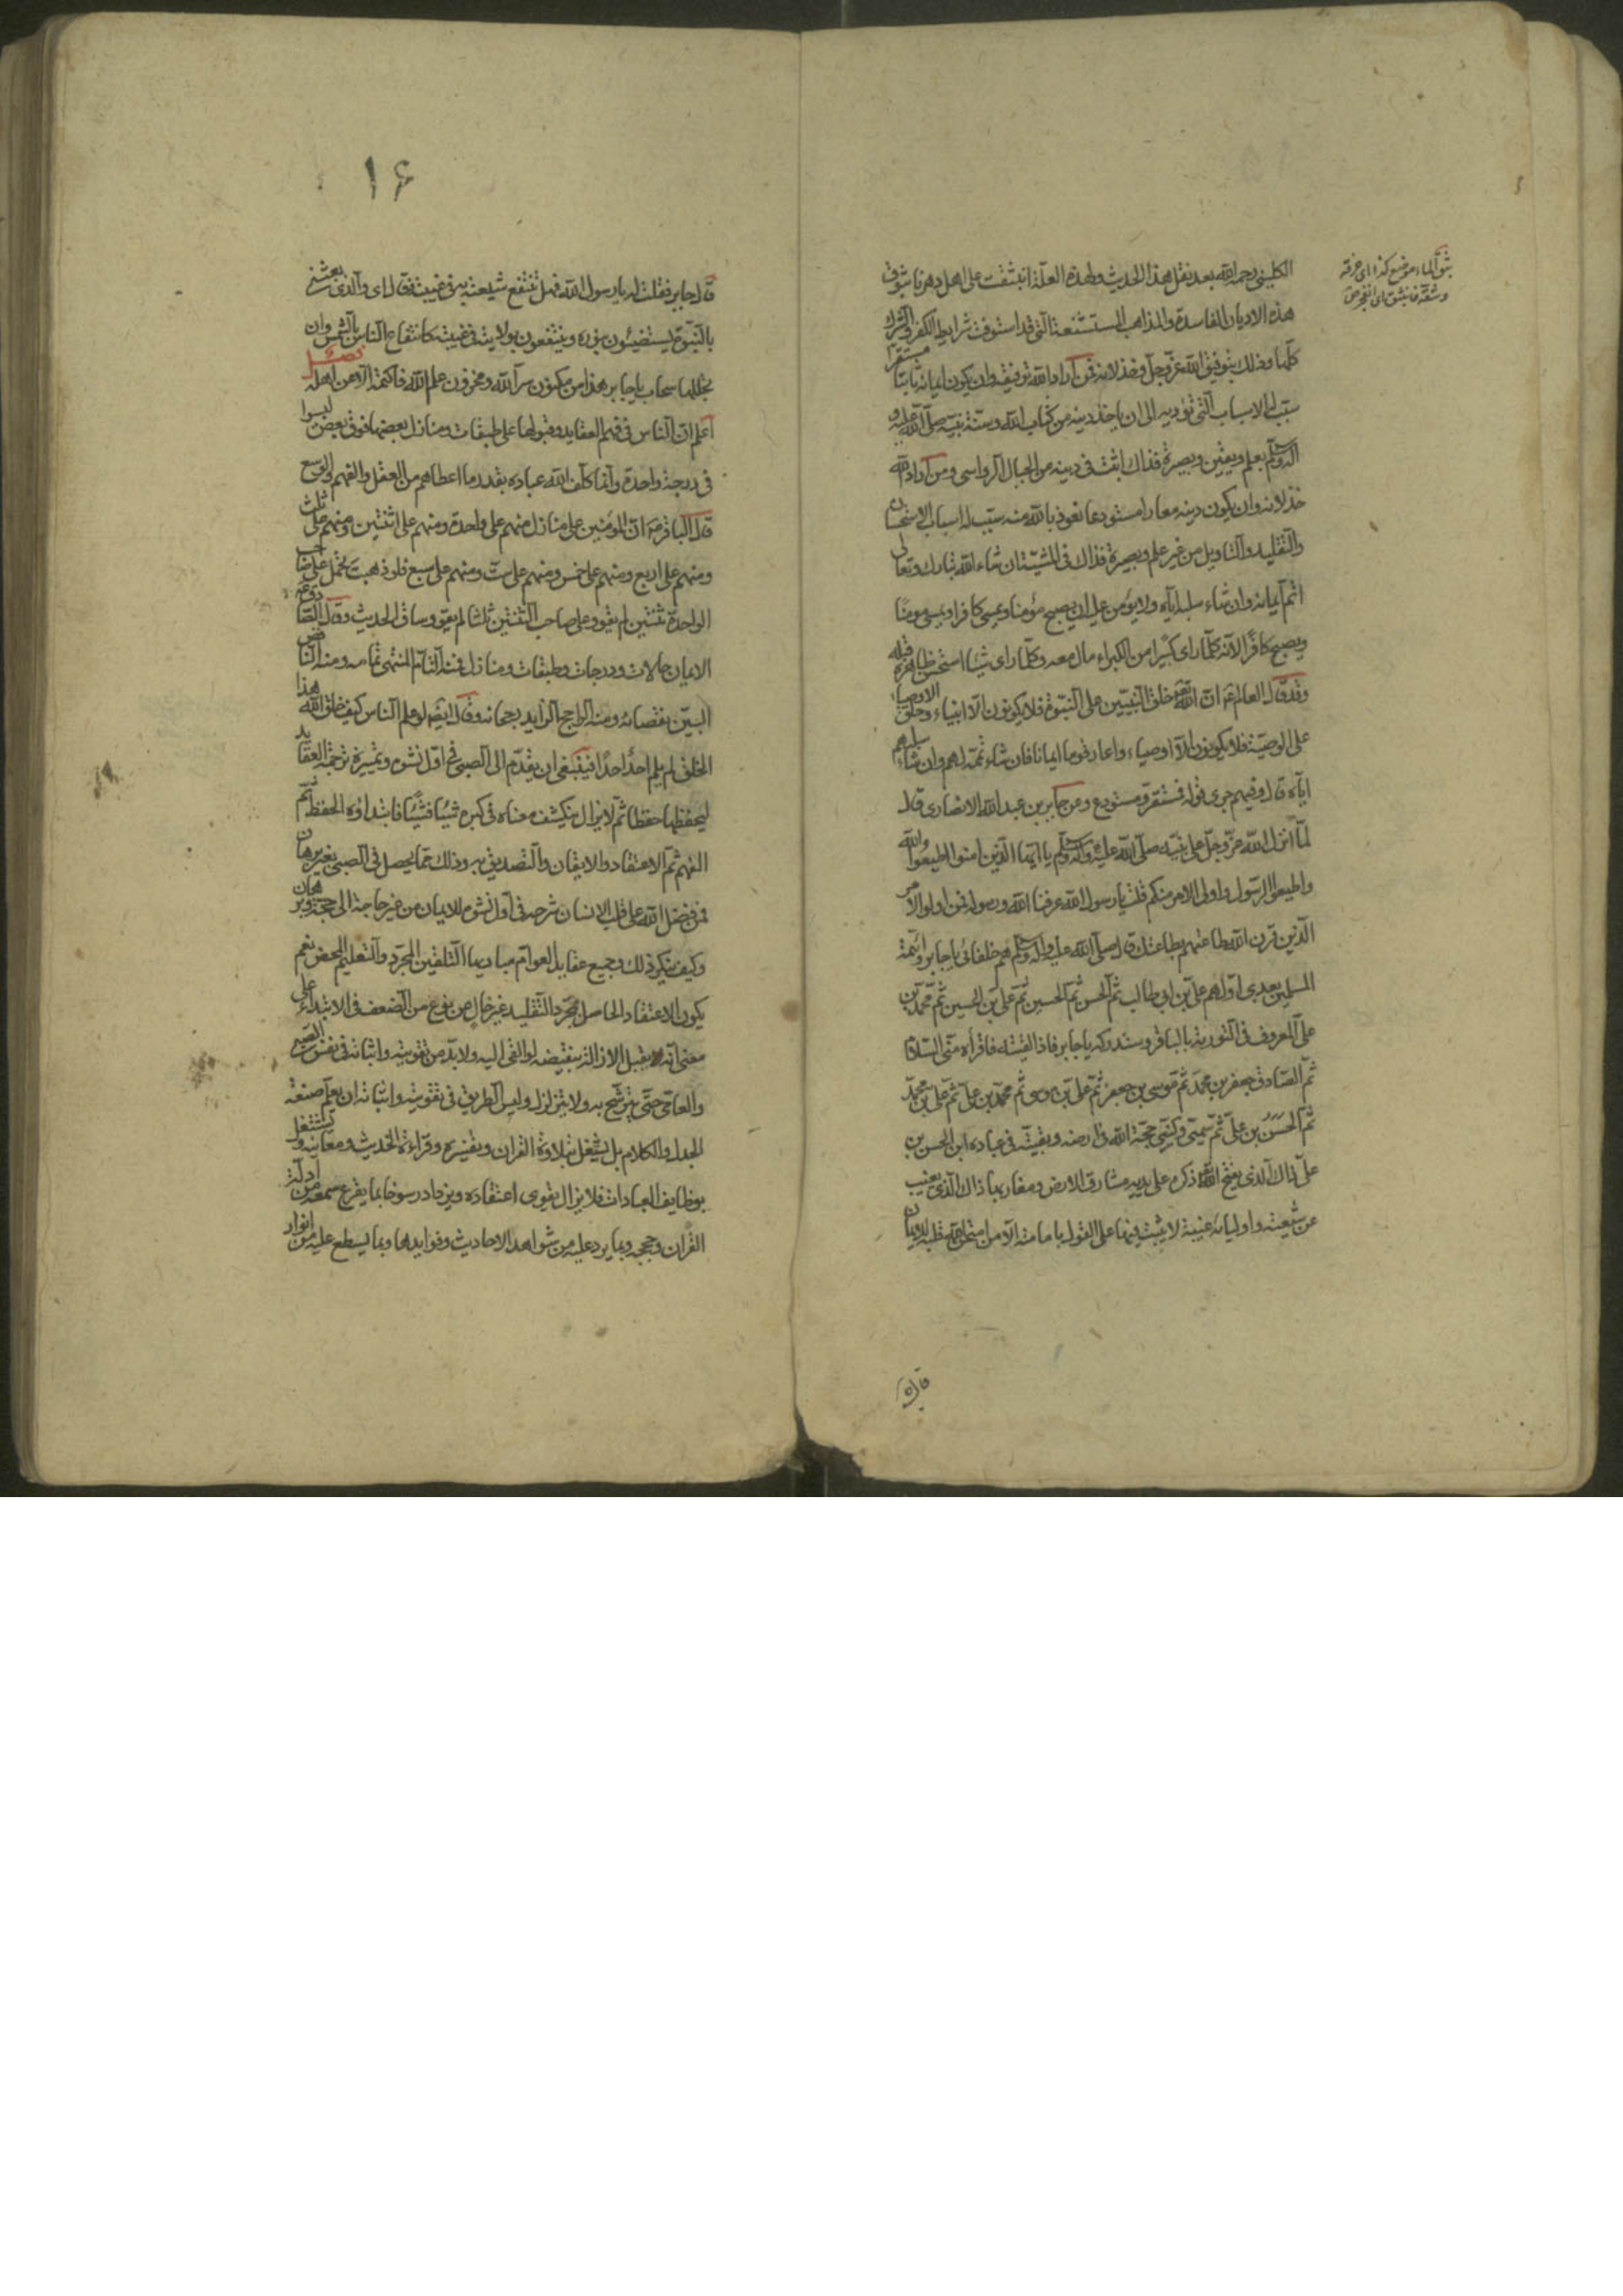 الكلينى رحمه الله بعد نقل هذا الحديث ولهذه العلة انبثقت على اهل دهرنا بثوق
هذه الاديان الفاسدة والمذاهب المستشنعة التى قد استوفت شرايط الكفر والشرك
كلها وذلك بتوفيق الله عز وجل وخذلانه فمن اراد الله توفيقه وان يكون ايمانه ثابتا مستقرا
سبب له الاسباب التى تؤديه الى ان ياخذ دينه من كتاب الله وسنة نبيه صلى الله عليه و
اله وسلم بعلم ويقين وبصيرة فذاك اثبت فى دينه من الجبال الرواسى ومن اراد الله
خذلانه وان يكون دينه معارا مستودعا نعوذ بالله منه سبب له اسباب الاستحسان
والتقليد والتاويل من غير علم وبصيرة فذاك فى المشية ان شاء الله تبارك وتعالى
اتم ايمانه وان شاء سلبه اياه ولا يؤمن عليه ان يصبح مؤمنا ويمسى كافرا ويمسى مومنا
ويصبح كافرا لانه كلما راى كبيرا من الكبراء مال معه وكلما راى شيئا استحسن ظاهره قبله
وقد قال العالم ع ان الله خلق النبيين على النبوة فلا يكونون الا انبياء وخلق الاوصياء
على الوصية فلا يكونون الا اوصياء واعار قوما ايمانا فان شاء تممه لهم وان شاء سلبهم
اياه قال وفيهم جرى قوله فمستقر ومستودع وعن جابر بن عبد الله الانصارى قال
لما انزل الله عز وجل على نبيه صلى الله عليه واله وسلم يا ايها الذين امنوا اطيعوا الله
واطيعوا الرسول واولى الامر منكم قلت يا رسول الله عرفنا الله ورسوله فمن اولوا الامر
الذين قرن الله طاعتهم بطاعتك قال صلى الله عليه واله وسلم هم خلفائى يا جابر وائمة
المسلمين بعدى اولهم على بن ابى طالب ثم الحسن ثم الحسين ثم على بن الحسين ثم محمد بن
على المعروف فى التورية بالباقر وستدركه يا جابر فاذا لقيته فاقرأه منى السلام
ثم الصادق جعفر بن محمد ثم موسى بن جعفر ثم على بن موسى ثم محمد بن على ثم على بن محمد
ثم الحسن بن على ثم سميى وكنيى حجة الله فى ارضه وبقيته فى عباده ابن الحسن بن
على ذاك الذى يفتح الله ذكره على يديه مشارق الارض ومغاربها ذاك الذى يغيب
عن شيعته واوليائه غيبة لا يثبت فيها على القول بامامته الا من امتحن الله قلبه للايمان
بثق الماء موضع كذا اى خرقه
وشقه فانبثق اى انفجر ص
قال
١۶
قال جابر فقلت له يا رسول الله فهل تنتفع شيعته به فى غيبته فقال اى والذى بعثنى
بالنبوة يستضيئون بنوره وينتفعون بولايته فى غيبته كانتفاع الناس بالشمس وان
تجللها سحاب يا جابر هذا من مكنون سر الله ومخزون علم الله فاكتمه الا من اهله فصل
اعلم ان الناس فى فهم العقايد وقبولها على طبقات ومنازل بعضها فوق بعض ليسوا
فى درجة واحدة وانما كلف الله عباده بقدر ما اعطاهم من العقل والفهم والوسع
قال الباقر ع ان المؤمنين على منازل منهم على واحدة ومنهم على اثنتين ومنهم على ثلث
ومنهم على اربع ومنهم على خمس ومنهم على ست ومنهم على سبع فلو ذهبت تحمل على صاحب
الواحدة ثنتين لم يقو وعلى صاحب الثنتين ثلثا لم يقو وساق الحديث وقال الصادق ع
الايمان حالات ودرجات وطبقات ومنازل فمنه التام المنتهى تمامه ومنه الناقص
البين نقصانه ومنه الراجح الزايد رجحانه وقال ايضا لو علم الناس كيف خلق الله هذا
الخلق لم يلم احد احدا فينبغى ان يقدم الى الصبى فى اول نشوه وتميزه ترجمة العقايد
ليحفظها حفظا ثم لا يزال ينكشف معناه فى كبره شيئا فشيئا فابتداؤه الحفظ ثم
الفهم ثم الاعتقاد والايقان والتصديق به وذلك مما يحصل فى الصبى بغير برهان
فمن فضل الله على قلب الانسان شرحه فى اول نشوه للايمان من غير حاجة الى حجة وبرهان
وكيف ينكر ذلك وجميع عقايد العوام مباديها التلقين المجرد والتعليم المحض نعم
يكون الاعتقاد الحاصل بمجرد التقليد غير خال من نوع من الضعف فى الابتداء على
معنى انه يقبل الازالة بنقيضه لو القى اليه ولا بد من تقويته واثباته فى نفس الصبى
والعامى حتى يترسخ به ولا يتزلزل وليس الطريق فى تقويته واثباته ان يعلم صنعة
الجدل والكلام بل يشتغل بتلاوة القران وتفسيره وقراءة الحديث ومعانيه ويشتغل
بوظايف العبادات فلا يزال يقوى اعتقاده ويزداد رسوخا بما يقرع سمعه من ادلة
القران وحججه وبما يرد عليه من شواهد الاحاديث وفوايدها وبما يسطع عليه من انوار